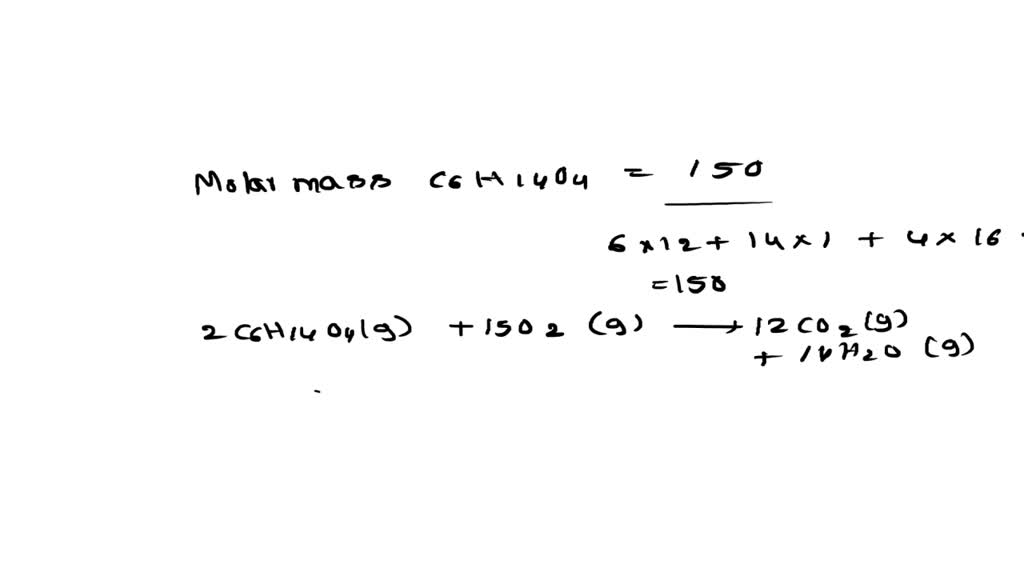 Molar mass C6H14O4 = 150
6 x 12 + 14 x 1 + 4 x 16
= 150
2 C6H14O4(g) + 15O2 (g) → 12 CO2 (g)
+ 14H2O (g)